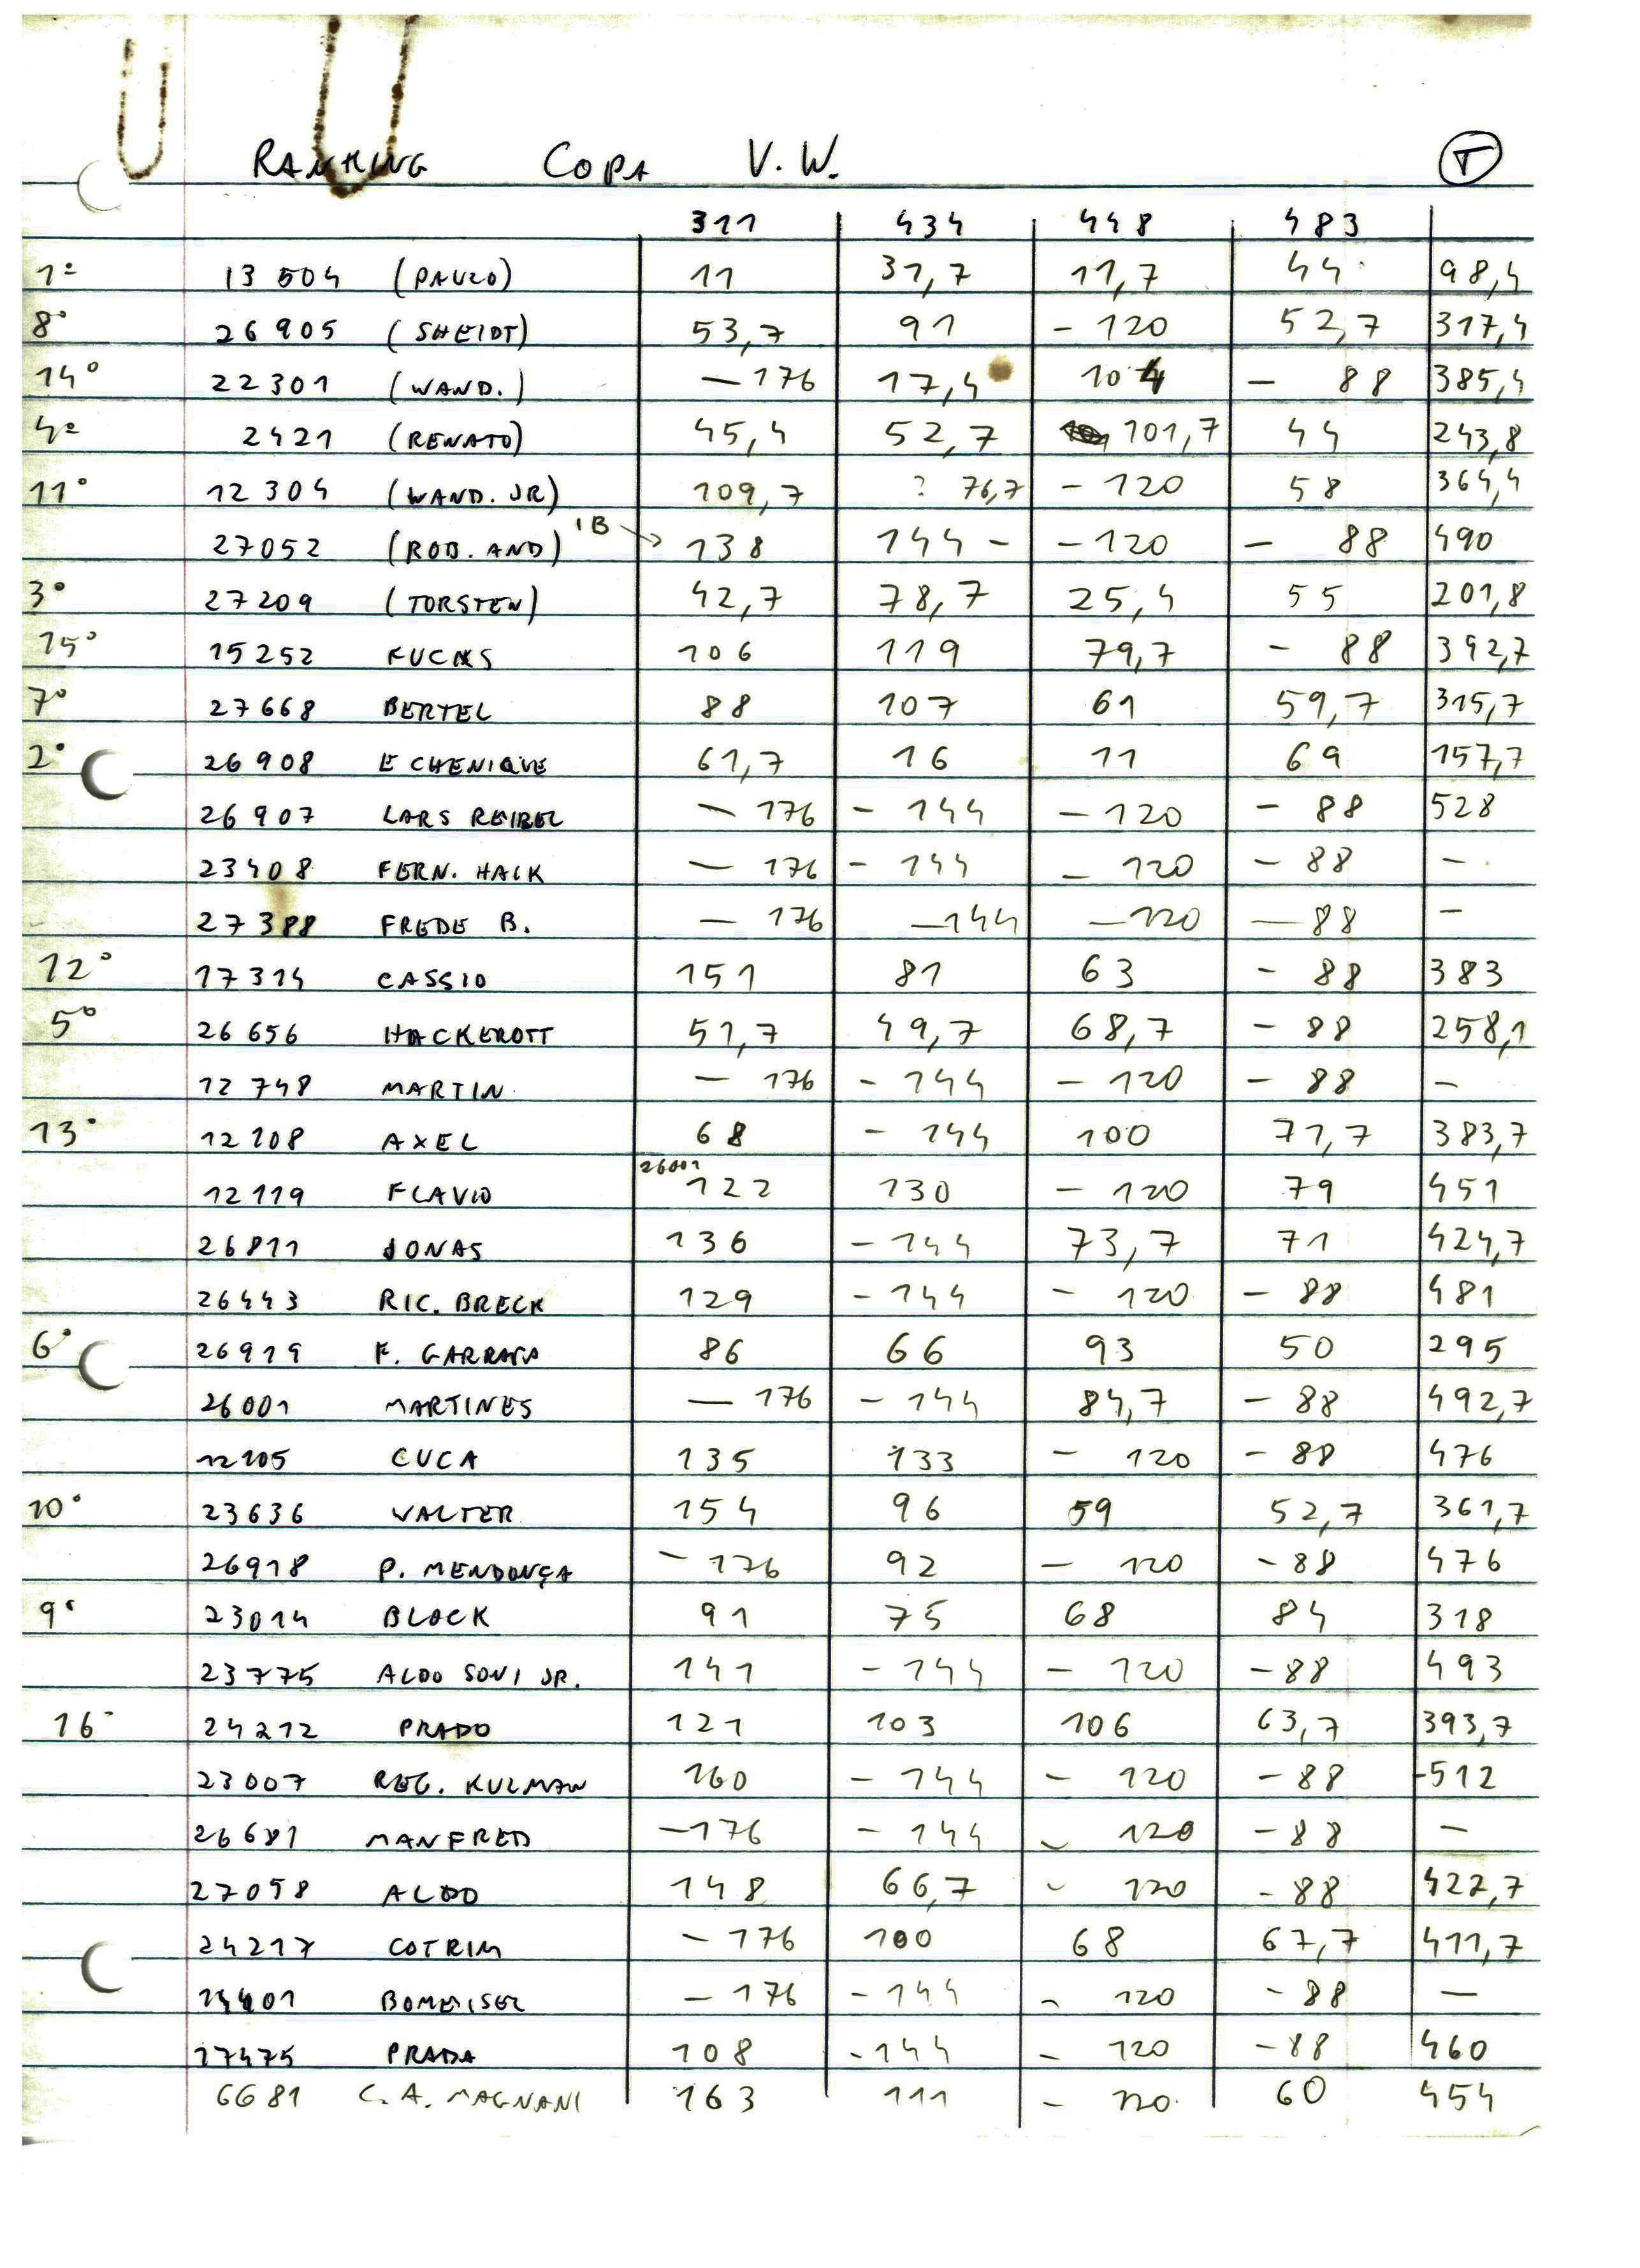 RANKING COPA V.W. T
311 434 448 483
1º 13504 (PAULO) 11 31,7 11,7 44 98,4
8º 26905 (SHEIDT) 53,7 91 - 120 52,7 317,4
14º 22301 (WAND.) - 176 17,4 104 - 88 385,4
4º 2421 (RENATO) 45,4 52,7 101,7 44 243,8
11º 12304 (WAND. JR) 109,7 ? 76,7 - 120 58 364,4
27052 (ROB. AND) 1B → 138 144 - - 120 - 88 490
3º 27209 (TORSTEN) 42,7 78,7 25,4 55 201,8
15º 15252 FUCHS 106 119 79,7 - 88 392,7
7º 27668 BERTEL 88 107 61 59,7 315,7
2º 26908 ECHENIQUE 61,7 16 11 69 157,7
26907 LARS REIBEL - 176 - 144 - 120 - 88 528
23408 FERN. HACK - 176 - 144 - 120 - 88 -
27388 FREDE B. - 176 - 144 - 120 - 88 -
12º 17314 CASSIO 151 81 63 - 88 383
5º 26656 HACKEROTT 51,7 49,7 68,7 - 88 258,1
12748 MARTIN - 176 - 144 - 120 - 88 -
13º 12108 AXEL 68 - 144 100 71,7 383,7
26001
12119 FLAVIO 122 130 - 120 79 451
26811 JONAS 136 - 144 73,7 71 424,7
26443 RIC. BRECK 129 - 144 - 120 - 88 481
6º 26919 F. GARRAFA 86 66 93 50 295
26001 MARTINES - 176 - 144 84,7 - 88 492,7
12105 CUCA 135 133 - 120 - 88 476
10º 23636 VALTER 154 96 59 52,7 361,7
26918 P. MENDONÇA - 176 92 - 120 - 88 476
9º 23014 BLOCK 91 75 68 84 318
23775 ALDO SOVI JR. 141 - 144 - 120 - 88 493
16º 24212 PRADO 121 103 106 63,7 393,7
23007 REG. KULMAN 160 - 144 - 120 - 88 -512
26681 MANFRED - 176 - 144 - 120 - 88 -
27058 ALDO 148 66,7 - 120 - 88 422,7
24217 COTRIM - 176 100 68 67,7 411,7
14401 BOMEISEL - 176 - 144 - 120 - 88 -
17475 PRADA 108 - 144 - 120 - 88 460
6681 C. A. MAGNANI 163 111 - 120 60 454